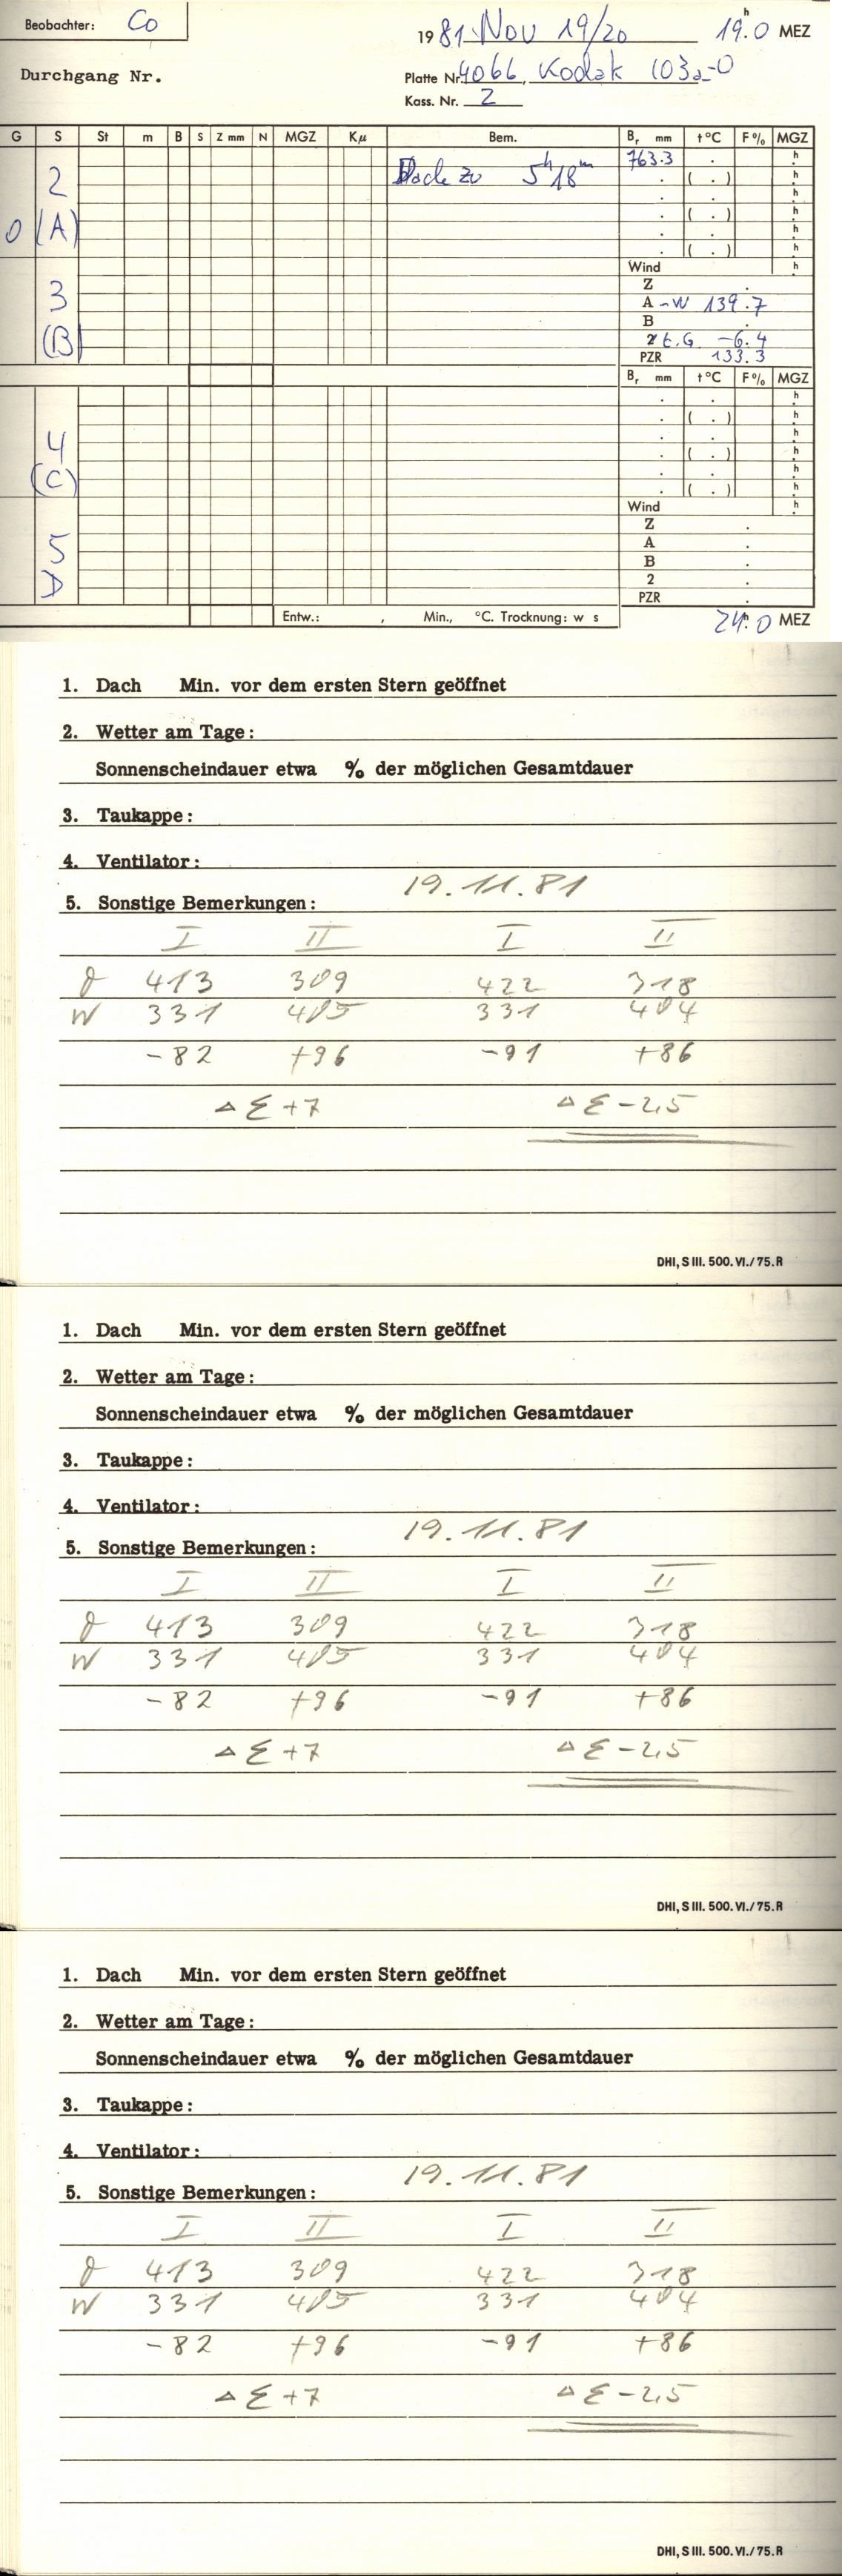 Beobachter: Co
1981 Nov 19/20 19h.0 MEZ
Durchgang Nr.
Platte Nr. 4066, Kodak 103a-O
Kass. Nr. 2
G S St m B S Z mm N MGZ Kμ Bem. Br mm t°C F% MGZ
763.3 . h
2 Dach zu 5h 18m . ( . ) h
. . h
0 (A) . ( . ) h
. . h
. ( . ) h
Wind h
Z .
3 A -W 139.7
B .
(B) 2 t.G. -6.4
PZR 133.3
Br mm t°C F% MGZ
. . h
. ( . ) h
4 . . h
. ( . ) h
(C) . . h
. ( . ) h
Wind h
Z .
5 A .
B .
D 2 .
PZR .
Entw.: , Min., °C. Trocknung: w s
24h.0 MEZ
1. Dach Min. vor dem ersten Stern geöffnet
2. Wetter am Tage:
Sonnenscheindauer etwa % der möglichen Gesamtdauer
3. Taukappe:
4. Ventilator:
19.11.81
5. Sonstige Bemerkungen:
I II I II
413 309 422 318
W 331 405 331 404
-82 +96 -91 +86
Δ Σ +7 Δ Σ -2,5
DHI, S III. 500. VI./75. R
1. Dach Min. vor dem ersten Stern geöffnet
2. Wetter am Tage:
Sonnenscheindauer etwa % der möglichen Gesamtdauer
3. Taukappe:
4. Ventilator:
19.11.81
5. Sonstige Bemerkungen:
I II I II
413 309 422 318
W 331 405 331 404
-82 +96 -91 +86
Δ Σ +7 Δ Σ -2,5
DHI, S III. 500. VI./75. R
1. Dach Min. vor dem ersten Stern geöffnet
2. Wetter am Tage:
Sonnenscheindauer etwa % der möglichen Gesamtdauer
3. Taukappe:
4. Ventilator:
19.11.81
5. Sonstige Bemerkungen:
I II I II
413 309 422 318
W 331 405 331 404
-82 +96 -91 +86
Δ Σ +7 Δ Σ -2,5
DHI, S III. 500. VI./75. R